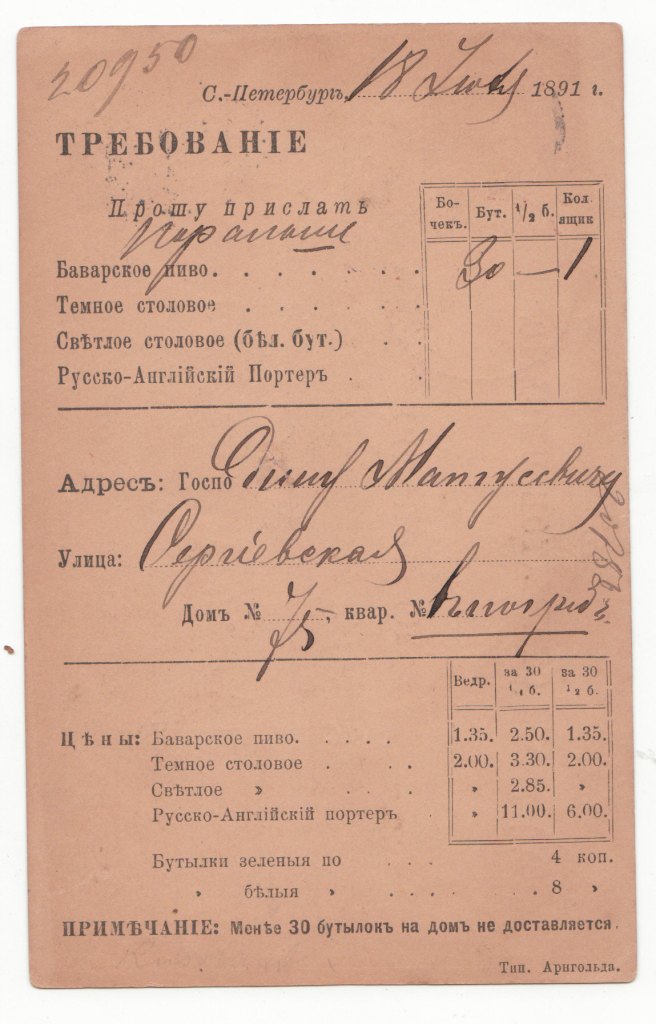 20950
С.-Петербургъ, 18 1891 г.
ТРЕБОВАНІЕ
Прошу прислать
Бочекъ. Бут. 1/2 б. Кол. ящик
Баварское пиво. 30 — 1
Темное столовое
Свѣтлое столовое (бѣл. бут.)
Русско-Англійскій Портеръ
Адресъ: Госпо Матусевичу
Улица: Сергіевская
Домъ № 75, квар. № въ погребъ
Ведр. за 30 1/1 б. за 30 1/2 б.
Цѣны: Баварское пиво. 1.35. 2.50. 1.35.
Темное столовое 2.00. 3.30. 2.00.
Свѣтлое » » 2.85. »
Русско-Англійскій портеръ » 11.00. 6.00.
Бутылки зеленыя по 4 коп.
» бѣлыя » 8 »
ПРИМѢЧАНІЕ: Менѣе 30 бутылокъ на домъ не доставляется.
Тип. Арнгольда.